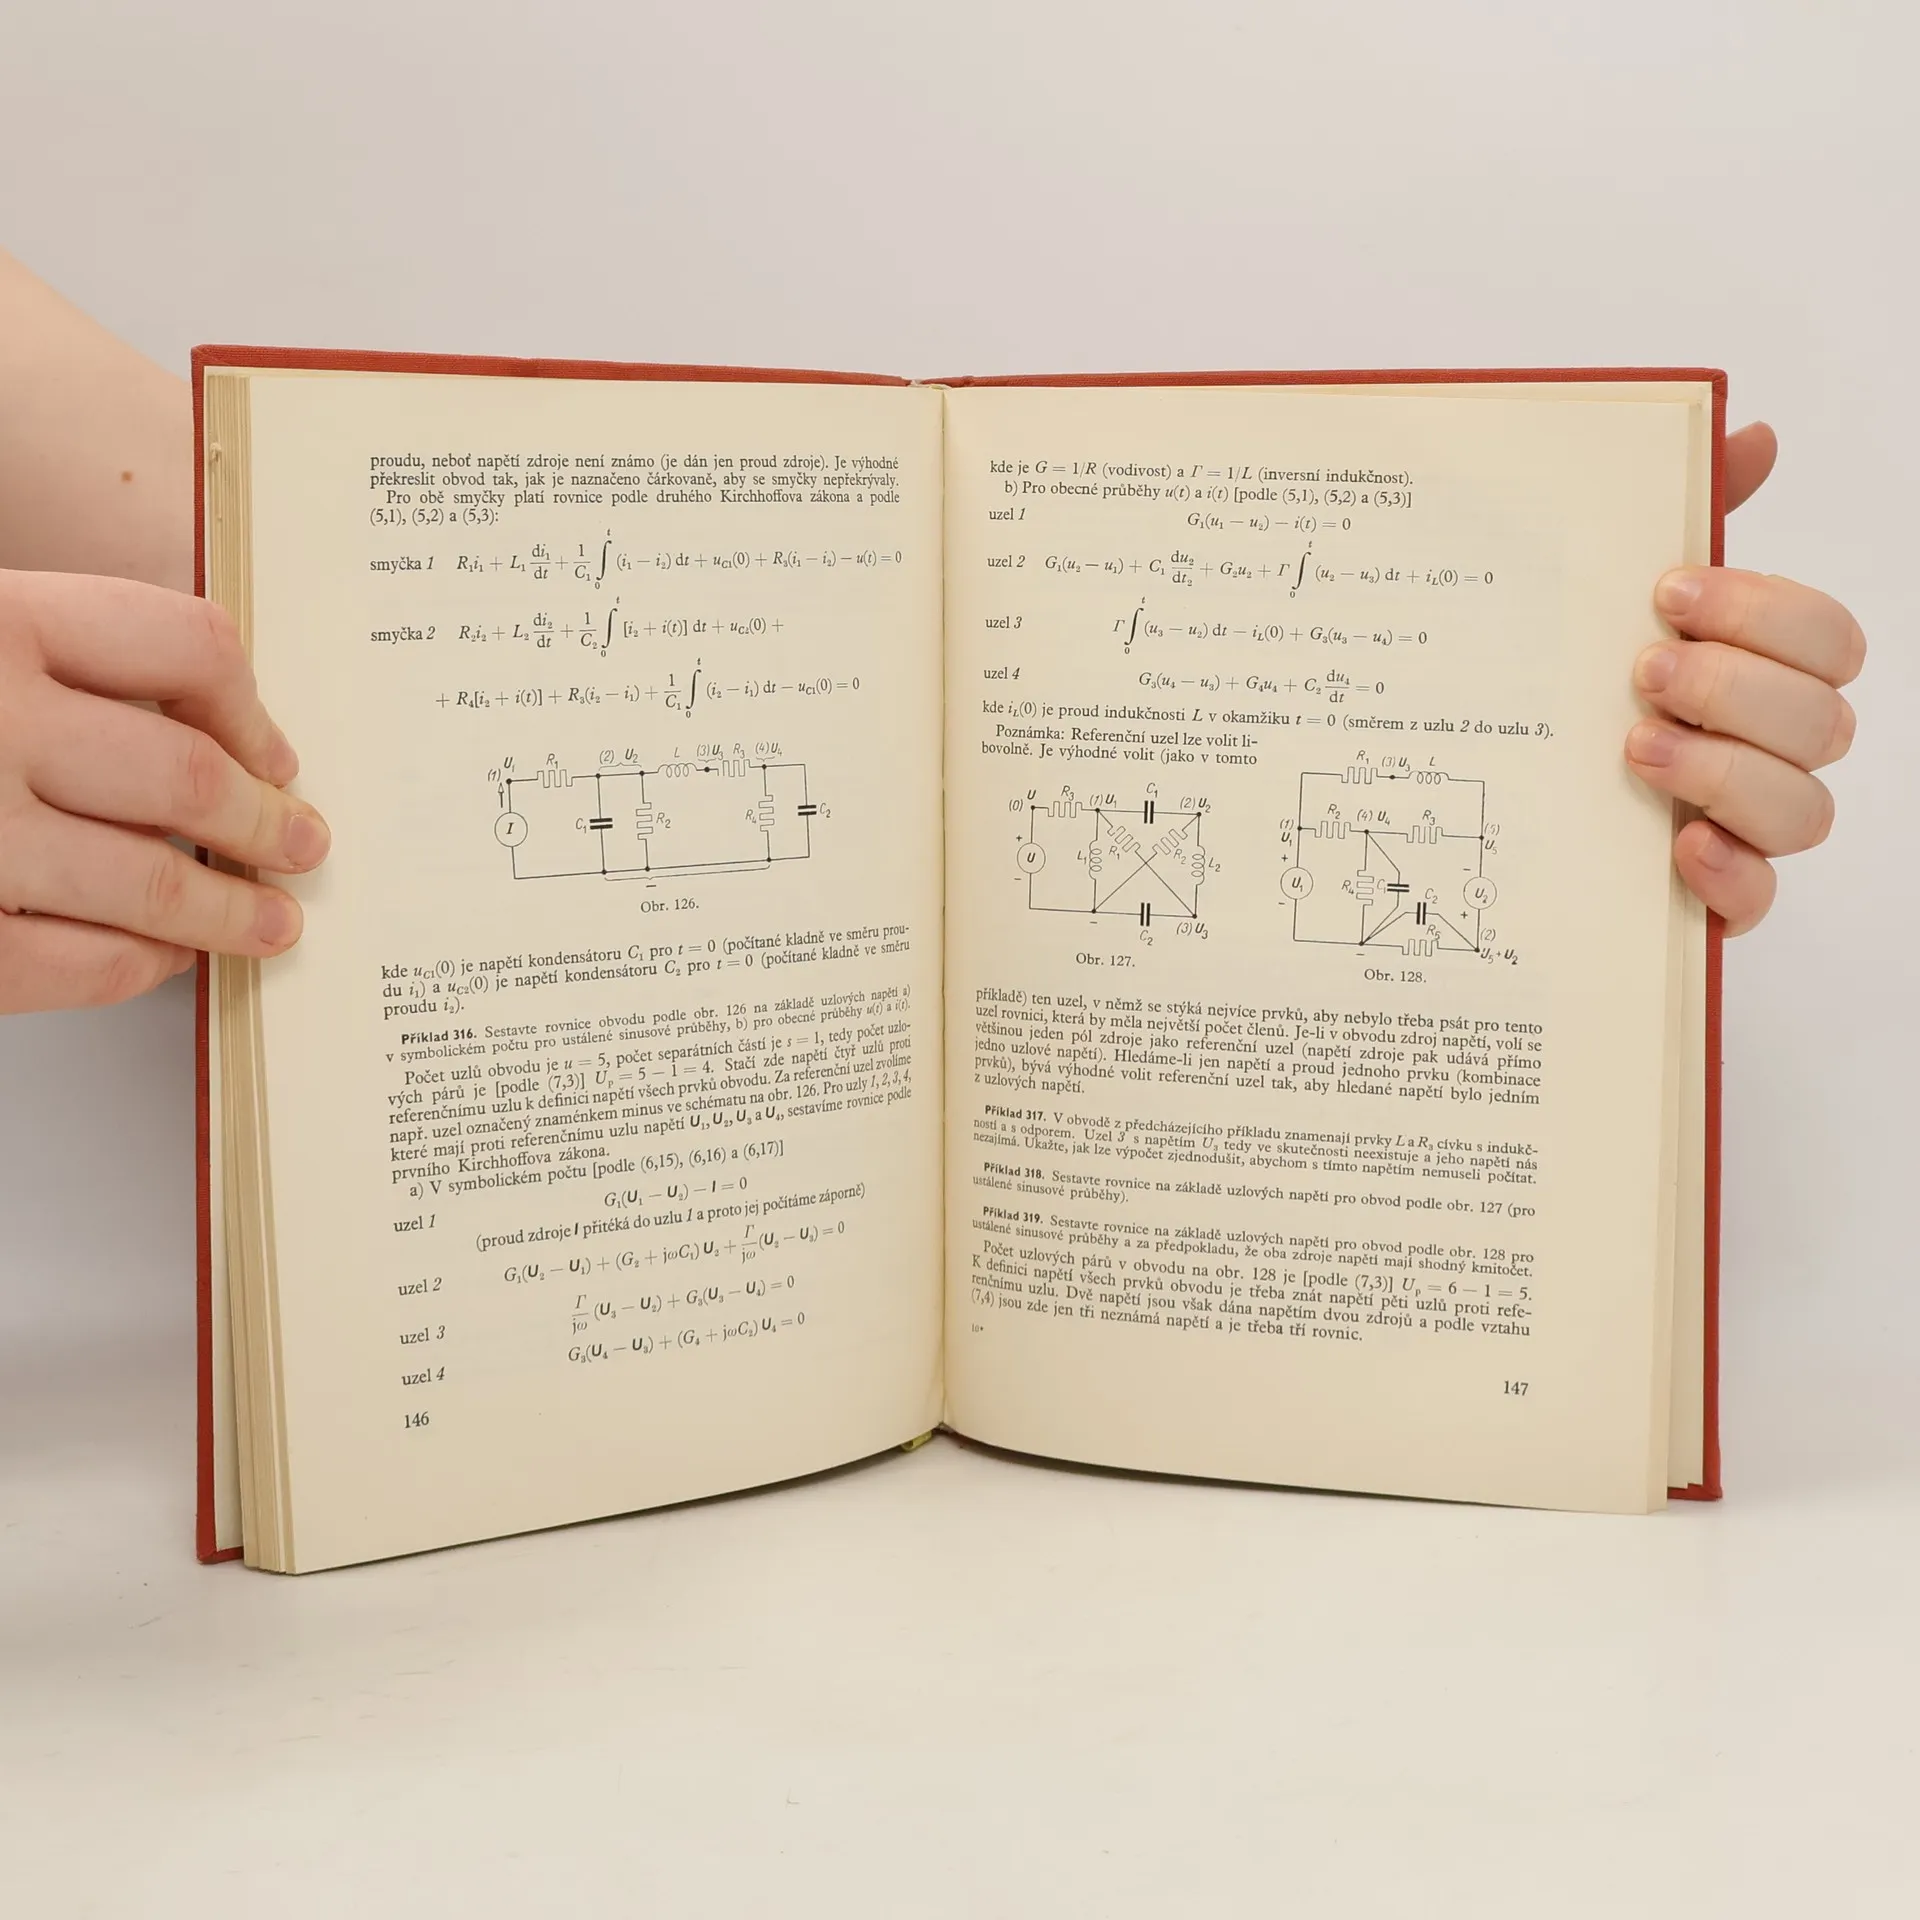 proudu, neboť napětí zdroje není známo (je dán jen proud zdroje). Je výhodné
překreslit obvod tak, jak je naznačeno čárkovaně, aby se smyčky nepřekrývaly.
Pro obě smyčky platí rovnice podle druhého Kirchhoffova zákona a podle
(5,1), (5,2) a (5,3):
smyčka 1 R₁i₁ + L₁ di₁/dt + 1/C₁ ∫₀ᵗ (i₁ − i₂) dt + u_C1(0) + R₃(i₁ − i₂) − u(t) = 0
smyčka 2 R₂i₂ + L₂ di₂/dt + 1/C₂ ∫₀ᵗ [i₂ + i(t)] dt + u_C2(0) +
+ R₄[i₂ + i(t)] + R₃(i₂ − i₁) + 1/C₁ ∫₀ᵗ (i₂ − i₁) dt − u_C1(0) = 0
(1) U₁ R₁ (2) U₂ L (3) U₃ R₃ (4) U₄
I C₁ R₂ R₄ C₂
−
Obr. 126.
kde u_C1(0) je napětí kondensátoru C₁ pro t = 0 (počítané kladně ve směru prou-
du i₁) a u_C2(0) je napětí kondensátoru C₂ pro t = 0 (počítané kladně ve směru
proudu i₂).
Příklad 316. Sestavte rovnice obvodu podle obr. 126 na základě uzlových napětí a)
v symbolickém počtu pro ustálené sinusové průběhy, b) pro obecné průběhy u(t) a i(t).
Počet uzlů obvodu je u = 5, počet separátních částí je s = 1, tedy počet uzlo-
vých párů je [podle (7,3)] U_p = 5 − 1 = 4. Stačí zde napětí čtyř uzlů proti
referenčnímu uzlu k definici napětí všech prvků obvodu. Za referenční uzel zvolíme
např. uzel označený znaménkem minus ve schématu na obr. 126. Pro uzly 1, 2, 3, 4,
které mají proti referenčnímu uzlu napětí U₁, U₂, U₃ a U₄, sestavíme rovnice podle
prvního Kirchhoffova zákona.
a) V symbolickém počtu [podle (6,15), (6,16) a (6,17)]
uzel 1 G₁(U₁ − U₂) − I = 0
(proud zdroje I přitéká do uzlu 1 a proto jej počítáme záporně)
uzel 2 G₁(U₂ − U₁) + (G₂ + jωC₁) U₂ + Γ/jω (U₂ − U₃) = 0
uzel 3 Γ/jω (U₃ − U₂) + G₃(U₃ − U₄) = 0
uzel 4 G₃(U₄ − U₃) + (G₄ + jωC₂) U₄ = 0
146
kde je G = 1/R (vodivost) a Γ = 1/L (inversní indukčnost).
b) Pro obecné průběhy u(t) a i(t) [podle (5,1), (5,2) a (5,3)]
uzel 1 G₁(u₁ − u₂) − i(t) = 0
uzel 2 G₁(u₂ − u₁) + C₁ du₂/dt₂ + G₂u₂ + Γ ∫₀ᵗ (u₂ − u₃) dt + i_L(0) = 0
uzel 3 Γ ∫₀ᵗ (u₃ − u₂) dt − i_L(0) + G₃(u₃ − u₄) = 0
uzel 4 G₃(u₄ − u₃) + G₄u₄ + C₂ du₄/dt = 0
kde i_L(0) je proud indukčnosti L v okamžiku t = 0 (směrem z uzlu 2 do uzlu 3).
Poznámka: Referenční uzel lze volit li-
bovolně. Je výhodné volit (jako v tomto
(0) U R₃ (1) U₁ C₁ (2) U₂
+ U − L₁ R₁ R₂ L₂
− C₂ (3) U₃
Obr. 127.
R₁ (3) U₃ L
(1) U₁ R₂ (4) U₄ R₃ (5) U₅
+ U₁ − R₄ C₁ C₂ − U₂ +
− R₅ (2) U₅ + U₂
Obr. 128.
příkladě) ten uzel, v němž se stýká nejvíce prvků, aby nebylo třeba psát pro tento
uzel rovnici, která by měla největší počet členů. Je-li v obvodu zdroj napětí, volí se
většinou jeden pól zdroje jako referenční uzel (napětí zdroje pak udává přímo
jedno uzlové napětí). Hledáme-li jen napětí a proud jednoho prvku (kombinace
prvků), bývá výhodné volit referenční uzel tak, aby hledané napětí bylo jedním
z uzlových napětí.
Příklad 317. V obvodě z předcházejícího příkladu znamenají prvky L a R₃ cívku s indukč-
ností a s odporem. Uzel 3 s napětím U₃ tedy ve skutečnosti neexistuje a jeho napětí nás
nezajímá. Ukažte, jak lze výpočet zjednodušit, abychom s tímto napětím nemuseli počítat.
Příklad 318. Sestavte rovnice na základě uzlových napětí pro obvod podle obr. 127 (pro
ustálené sinusové průběhy).
Příklad 319. Sestavte rovnice na základě uzlových napětí pro obvod podle obr. 128 pro
ustálené sinusové průběhy a za předpokladu, že oba zdroje napětí mají shodný kmitočet.
Počet uzlových párů v obvodu na obr. 128 je [podle (7,3)] U_p = 6 − 1 = 5.
K definici napětí všech prvků obvodu je třeba znát napětí pěti uzlů proti refe-
renčnímu uzlu. Dvě napětí jsou však dána napětím dvou zdrojů a podle vztahu
(7,4) jsou zde jen tři neznámá napětí a je třeba tří rovnic.
10*
147